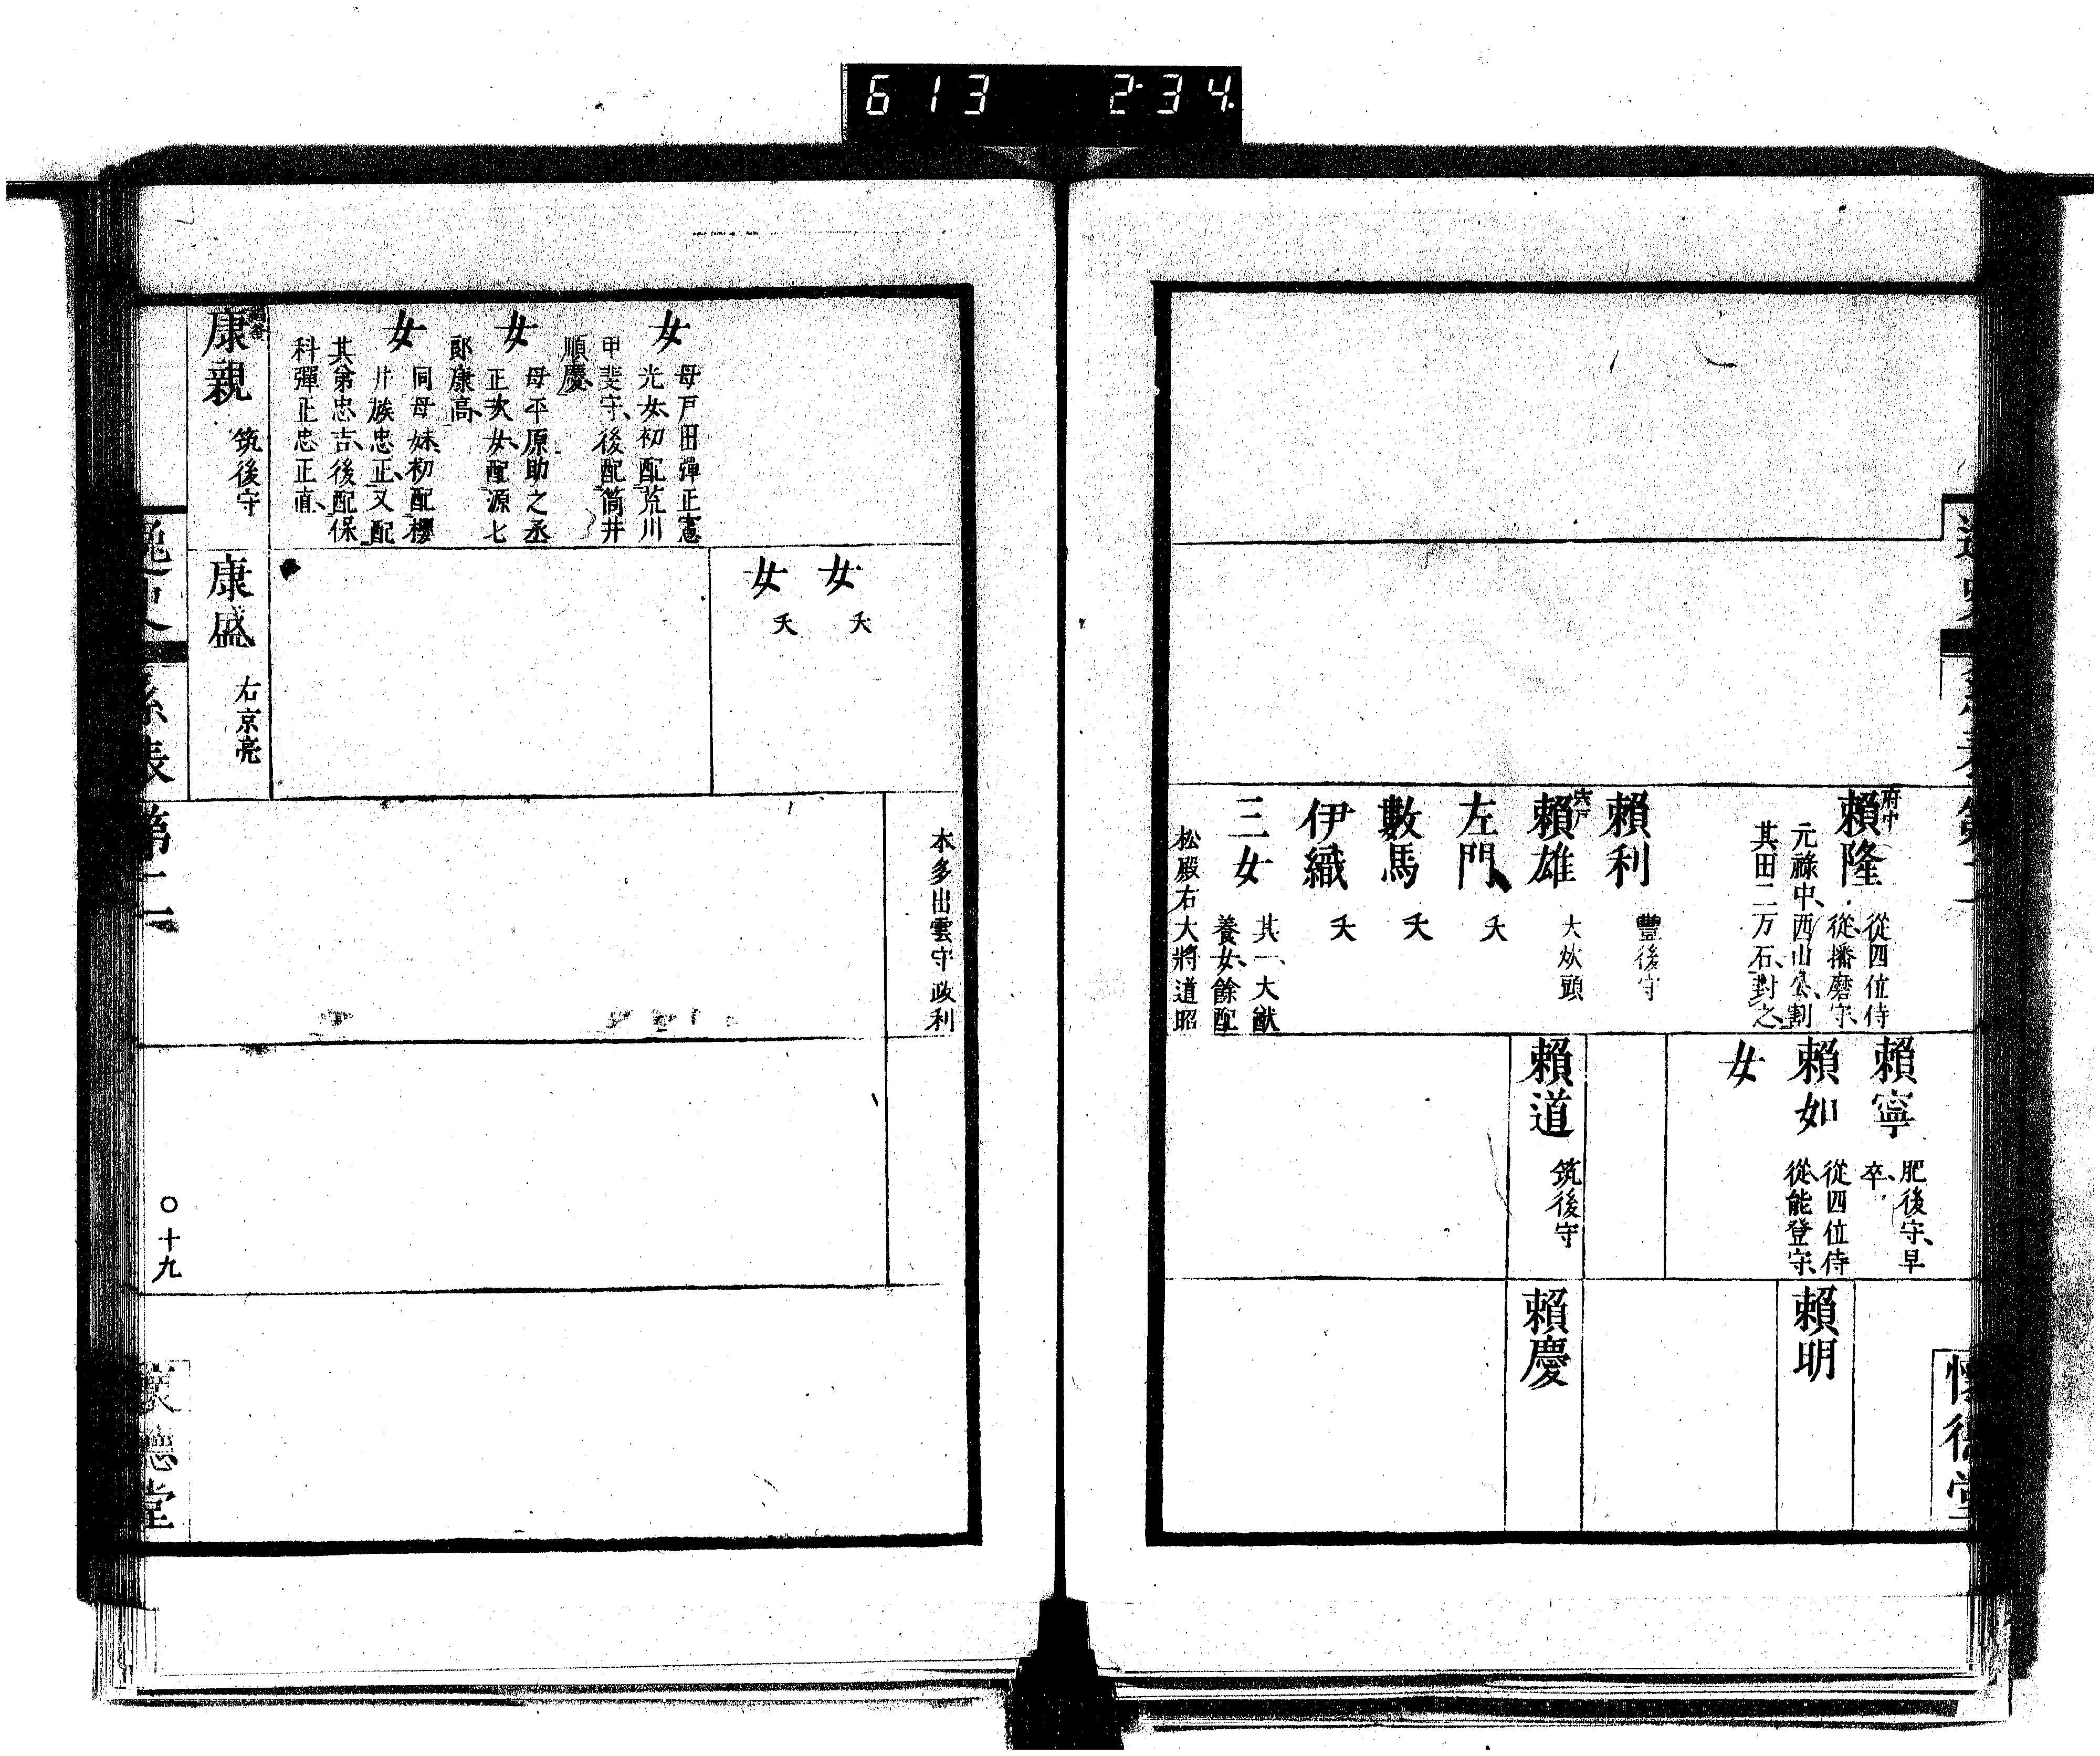 6 13 2-34.
府中
賴隆
從四位侍
從播磨守、
元祿中、西山公割
其田二万石、對之、
賴利
豐後守
宍戶
賴雄
大炊頭
左門
夭
數馬
夭
伊織
夭
三女
其一、大猷
養女、餘配
松殿右大將道昭
賴寧
肥後守、早
卒、
賴如
從四位侍
從能登守、
女
賴道
筑後守
賴明
賴慶
懷德堂
女
母戸田彈正憲
光女、初配荒川
甲斐守、後配筒井
順慶、
女
母平原助之丞
正次女、配源七
郎康高、
女
同母妹、初配櫻
井族忠正、又配
其弟忠吉、後配保
科彈正忠正直、
康親
筑後守
女
夭
女
夭
康盛
右京亮
本多出雲守政利
逸史
系表第二
〇十九
懷德堂